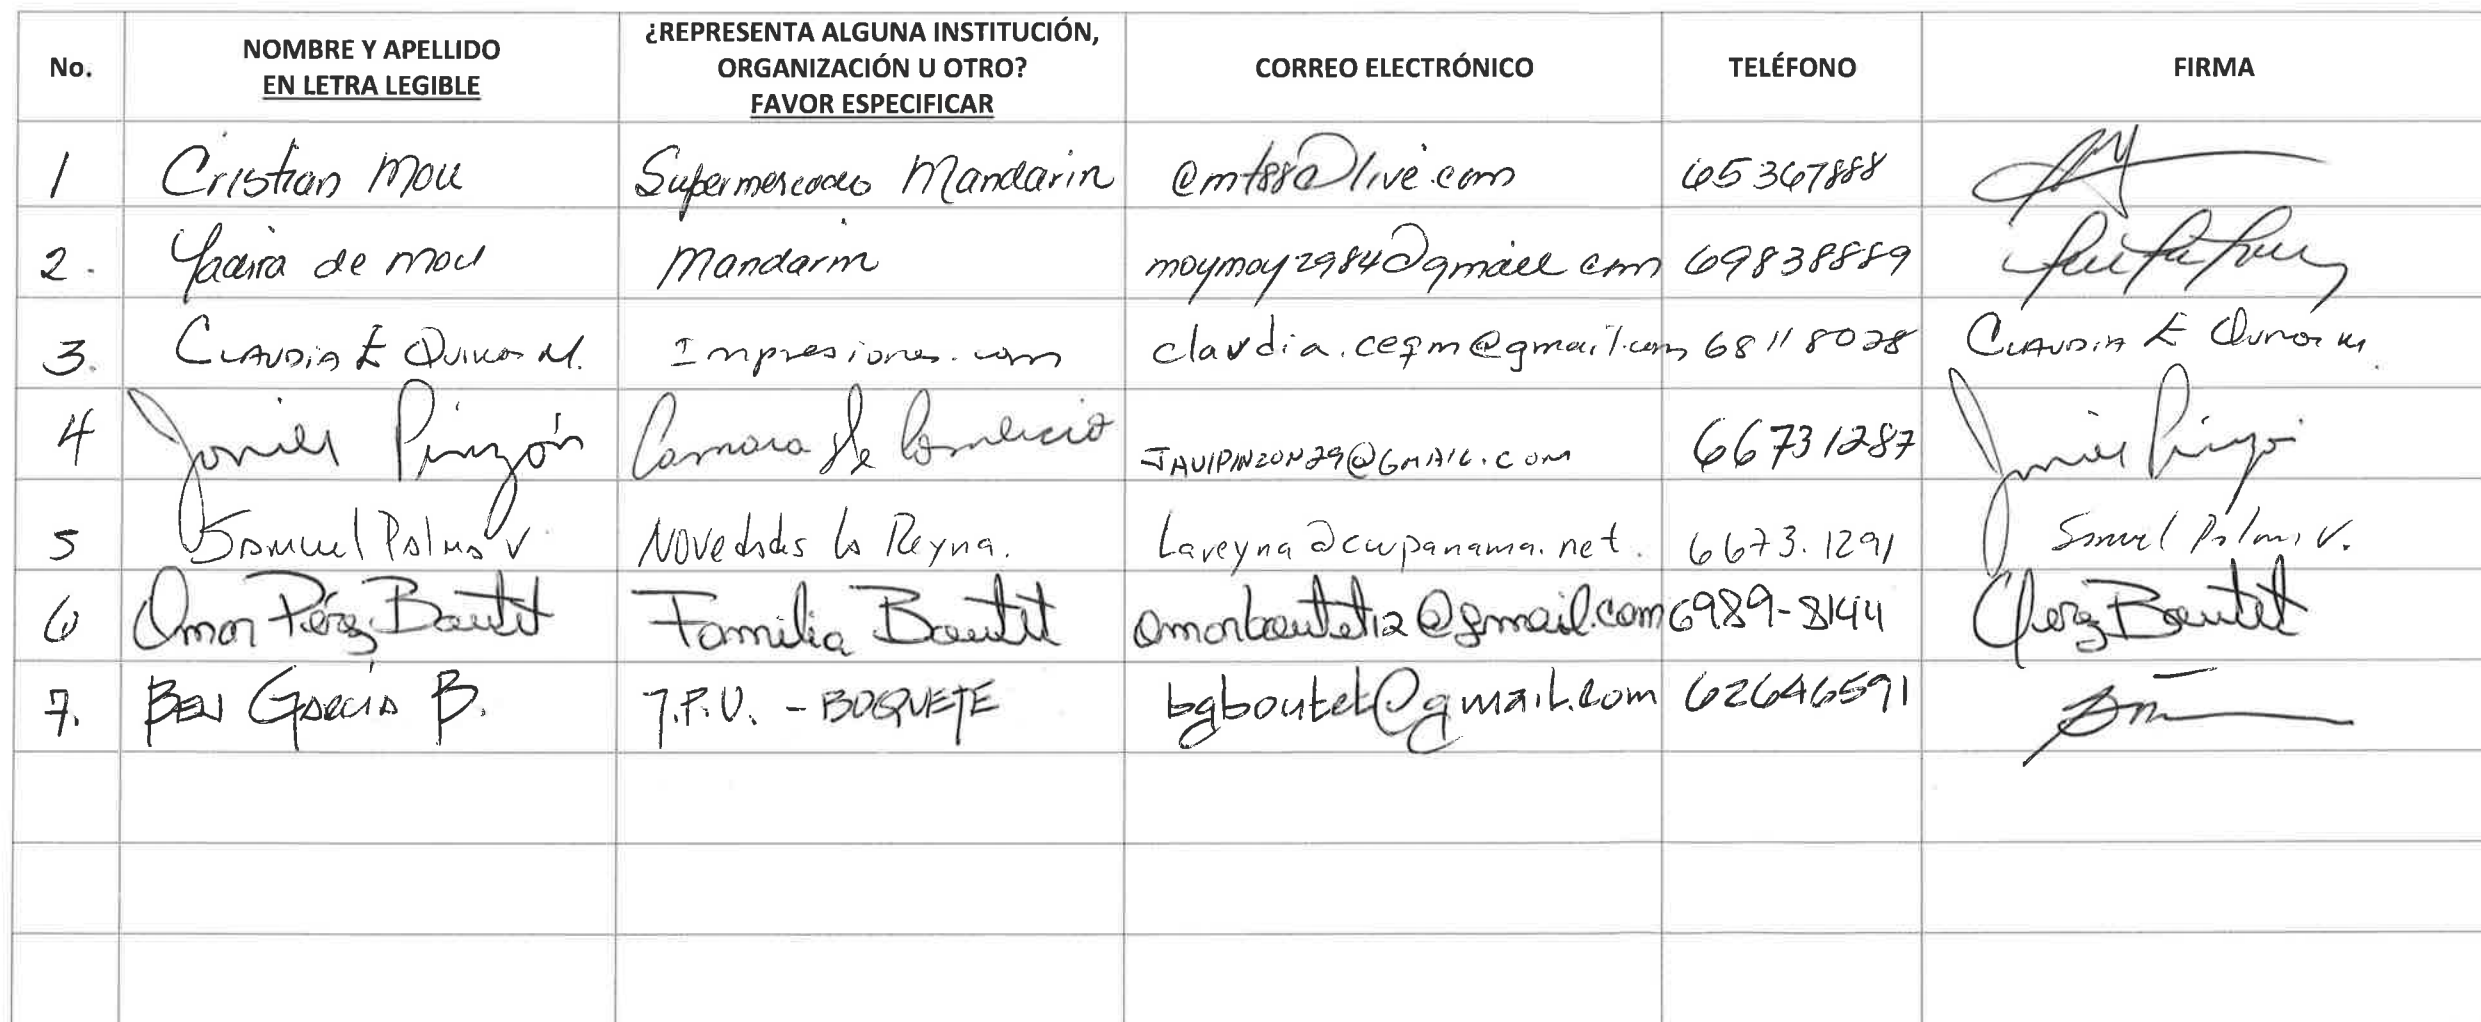 No. NOMBRE Y APELLIDO EN LETRA LEGIBLE ¿REPRESENTA ALGUNA INSTITUCIÓN, ORGANIZACIÓN U OTRO? FAVOR ESPECIFICAR CORREO ELECTRÓNICO TELÉFONO FIRMA
1 Cristian Mou Supermercados Mandarin @live.com 65367888
2. Yadira de Mou Mandarin moymoy2984@gmail.com 69838889
3. CLAUDIA E QUIROS M. Impresiones.com claudia.ceqm@gmail.com 68118028 CLAUDIA E QUIROS M.
4 Javier Pinzón Camara de Comercio JAVIPINZON29@GMAIL.COM 66731287 Javier Pinzón
5 Samuel Palma V. Novedades la Reyna. lareyna@cwpanama.net. 6673.1291 Samuel Palma V.
6 Omar Pérez Boutet Familia Boutet omarboutet12@gmail.com 6989-8144 OPerez Boutet
7. BEN GARCIA B. J.P.V. - BOQUETE bgboutet@gmail.com 62646591